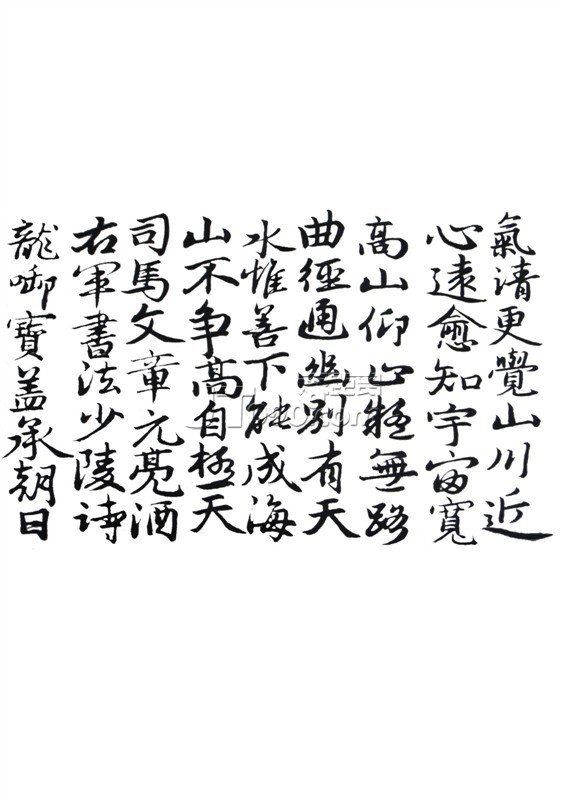 氣清更覺山川近
心遠愈知宇宙寬
高山仰止疑無路
曲徑通幽别有天
水惟善下能成海
山不争高自極天
司馬文章元亮酒
右軍書法少陵詩
龍啣寶盖承朝日